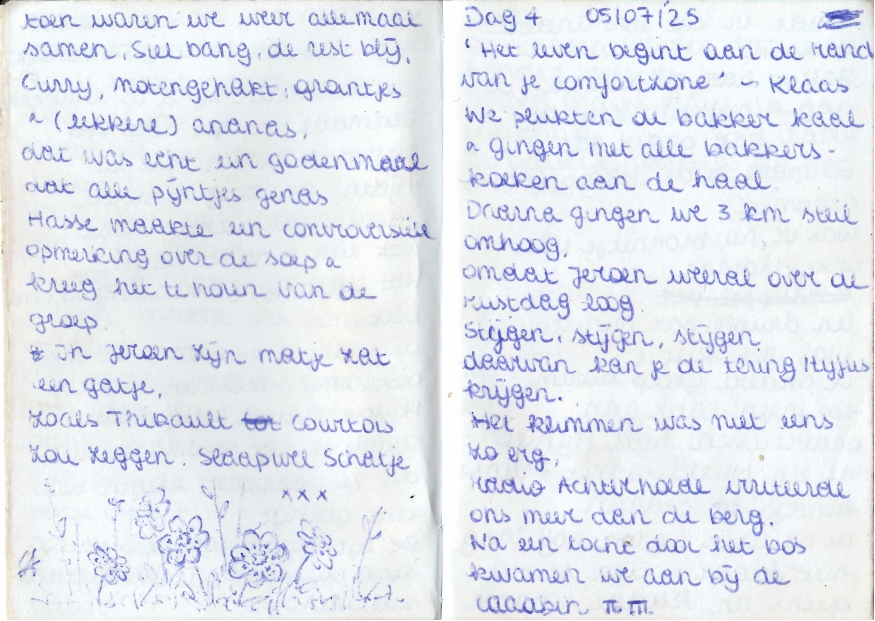 toen waren we weer allemaal
samen, Siel bang, de rest blij,
Curry, notengehakt, grantjes
n (lekkere) ananas,
dat was echt een godenmaal
dat alle pijntjes genas
Hasse maakte een controversiële
opmerking over de soep n
kreeg het te houn van de
groep.
In Jeroen zijn matje zat
een gatje,
zoals Thibault Courtois
zou zeggen: Slaapwel Schatje
xxx
Dag 4 05/07/25
"Het leven begint aan de rand
van je comfortzone" - Klaas
We plukten de bakker kaal
n gingen met alle bakkers-
koeken aan de haal.
Daarna gingen we 3 km steil
omhoog,
omdat Jeroen weeral over de
rustdag loog.
Stijgen, stijgen, stijgen
daarvan kan je de tering tyfus
krijgen.
Het klimmen was niet eens
zo erg,
Radio Achterhoede irriteerde
ons meer dan de berg.
Na een tocht door het bos
kwamen we aan bij de
caaabin